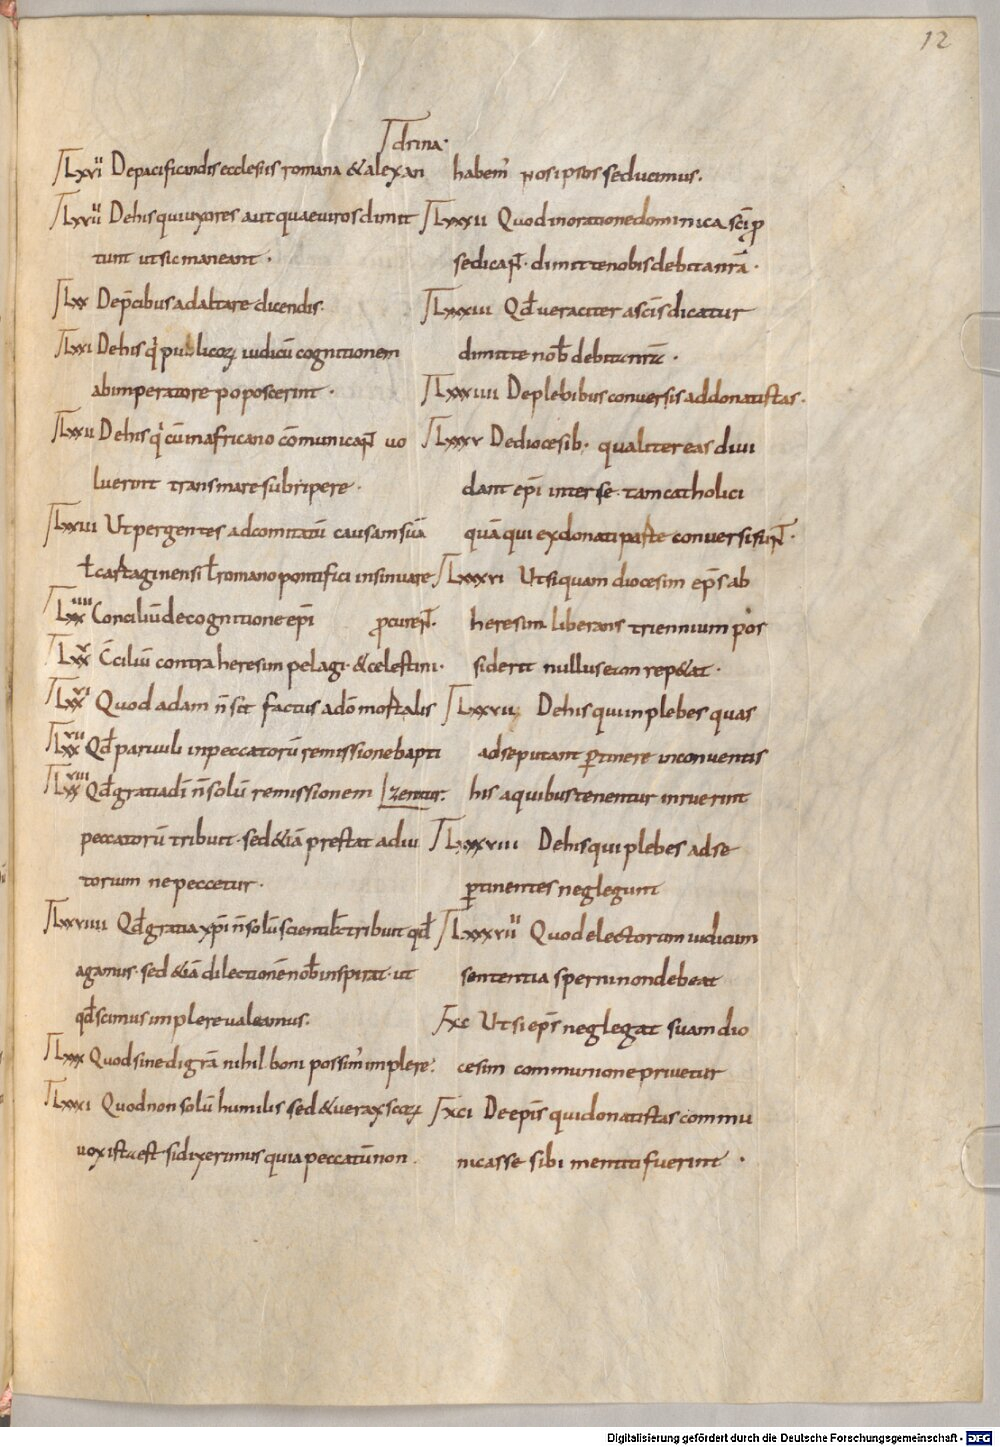 12
drina·
Lxvi Depacificandis ecclesiis romana & alexan
Lxvii Dehis qui uxores aut quae uiros dimit
tunt ut sic maneant·
Lxx Dep̄cibus ad altare dicendis·
Lxxi Dehis q publicoꝝ iudicū cognitionem
ab imperatore poposcerint·
Lxxii Dehis q cū in africa nō cōmunicaꝶ uo
luerint transmare subripere·
Lxxiii Ut pergentes ad comitatū causam suā
ł cartaginensi ł romano pontifici insinuare
Lxxiiii Conciliū de cognitione ep̄i
ꝓcureꝶ·
Lxxv C̄ciliū contra heresim pelagi· & celestini·
Lxxvi Quod adam n̄ sit factus a dō mortalis
Lxxvii Qđ paruuli in peccatorū remissione bapti
zentur·
Lxxviii Qđ gratia dī n̄ solū remissionem
peccatorū tribuit· sed &iā prestat adiu
torium ne peccetur·
Lxxviiii Qđ gratia xp̄i n̄ solū scientiā tribuit qđ
agamus· sed &iā dilectionē nob̄ inspirat· ut
qđ scimus implere ualeamus·
Lxxx Quod sine dī grā nihil boni possim implere·
Lxxxi Quod non solū humilis sed & uerax scōꝝ
uox ista est si dixerimus quia peccatū non
habem̄ nos ipsos seducimus·
Lxxxii Quod in oratione dominica scī ꝓ
se dicaꝶ· dimitte nobis debita nr̄a·
Lxxxiii Qđ ueraciter a sc̄is dicatur
dimitte nob̄ debita nr̄a·
Lxxxiiii De plebibus conuersis ad donatistas·
Lxxxv De diocesib· qualiter eas diui
dant ep̄i inter se· tam catholici
quā qui ex donati parte conuersi suꝶ·
Lxxxvi Ut si quam diocesim ep̄s ab
heresim liberans triennium pos
siderit nullus eam rep&at·
Lxxxvii Dehis qui in plebes quas
ad se putant ꝑtinere inconuentis
his a quibus tenentur inruerint
Lxxxviii Dehis qui plebes ad se
ꝑtinentes neglegunt
Lxxxvii Quod electorum iudicum
sententia sperni non debeat
xc Ut si ep̄s neglegat suam dio
cesim communione priuetur
xci De ep̄is qui donatistas commu
nicasse sibi mentiti fuerint·
Digitalisierung gefördert durch die Deutsche Forschungsgemeinschaft - DFG